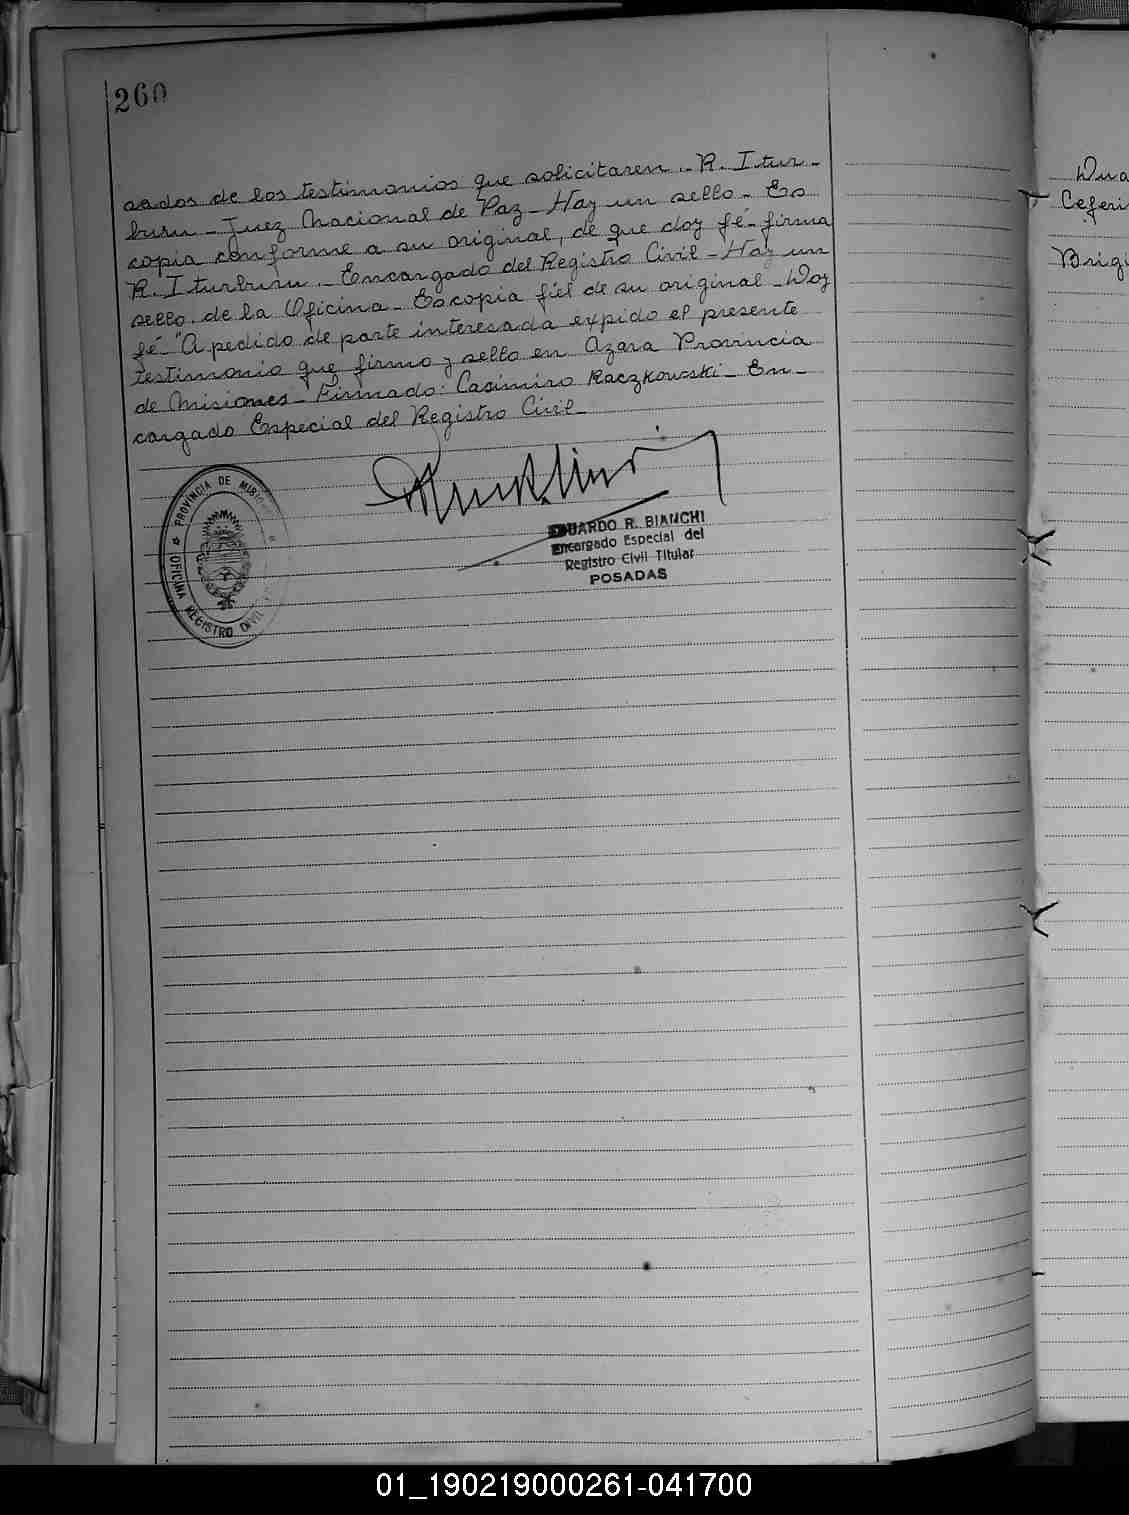 260
sados de los testimonios que solicitaren.- R. Itur-
buru - Juez Nacional de Paz - Hay un sello - Es
copia conforme a su original, de que doy fé - firma
R. Iturburu.- Encargado del Registro Civil - Hay un
sello de la Oficina - Es copia fiel de su original - Doy
fé - "A pedido de parte interesada expido el presente
testimonio que firmo y sello en Azara Provincia
de Misiones - Firmado: Casimiro Raczkowski - En-
cargado Especial del Registro Civil -
PROVINCIA DE MISIONES
OFICINA REGISTRO CIVIL
EDUARDO R. BIANCHI
Encargado Especial del
Registro Civil Titular
POSADAS
Ceferi
Brigi
01_190219000261-041700